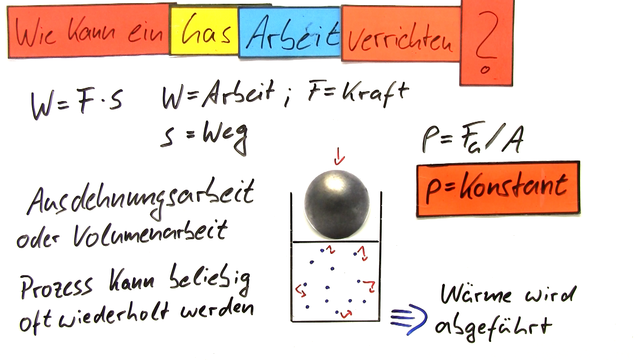 Wie kann ein Gas Arbeit verrichten ?
W = F · s
W = Arbeit ; F = Kraft
s = Weg
p = Fa / A
p = Konstant
Ausdehnungsarbeit
oder Volumenarbeit
Prozess kann beliebig
oft wiederholt werden
Wärme wird
abgeführt